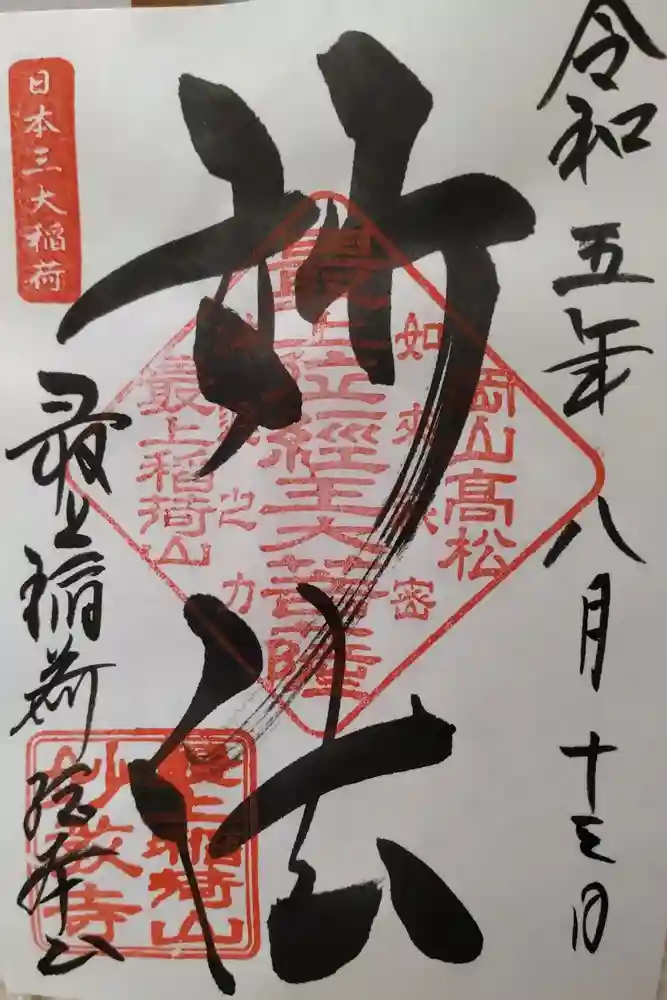 令和五年八月十三日
妙法
岡山高松
如来秘密
最上位経王大菩薩
神通之力
最上稲荷山
日本三大稲荷
最上稲荷総本山
最上稲荷山
妙教寺